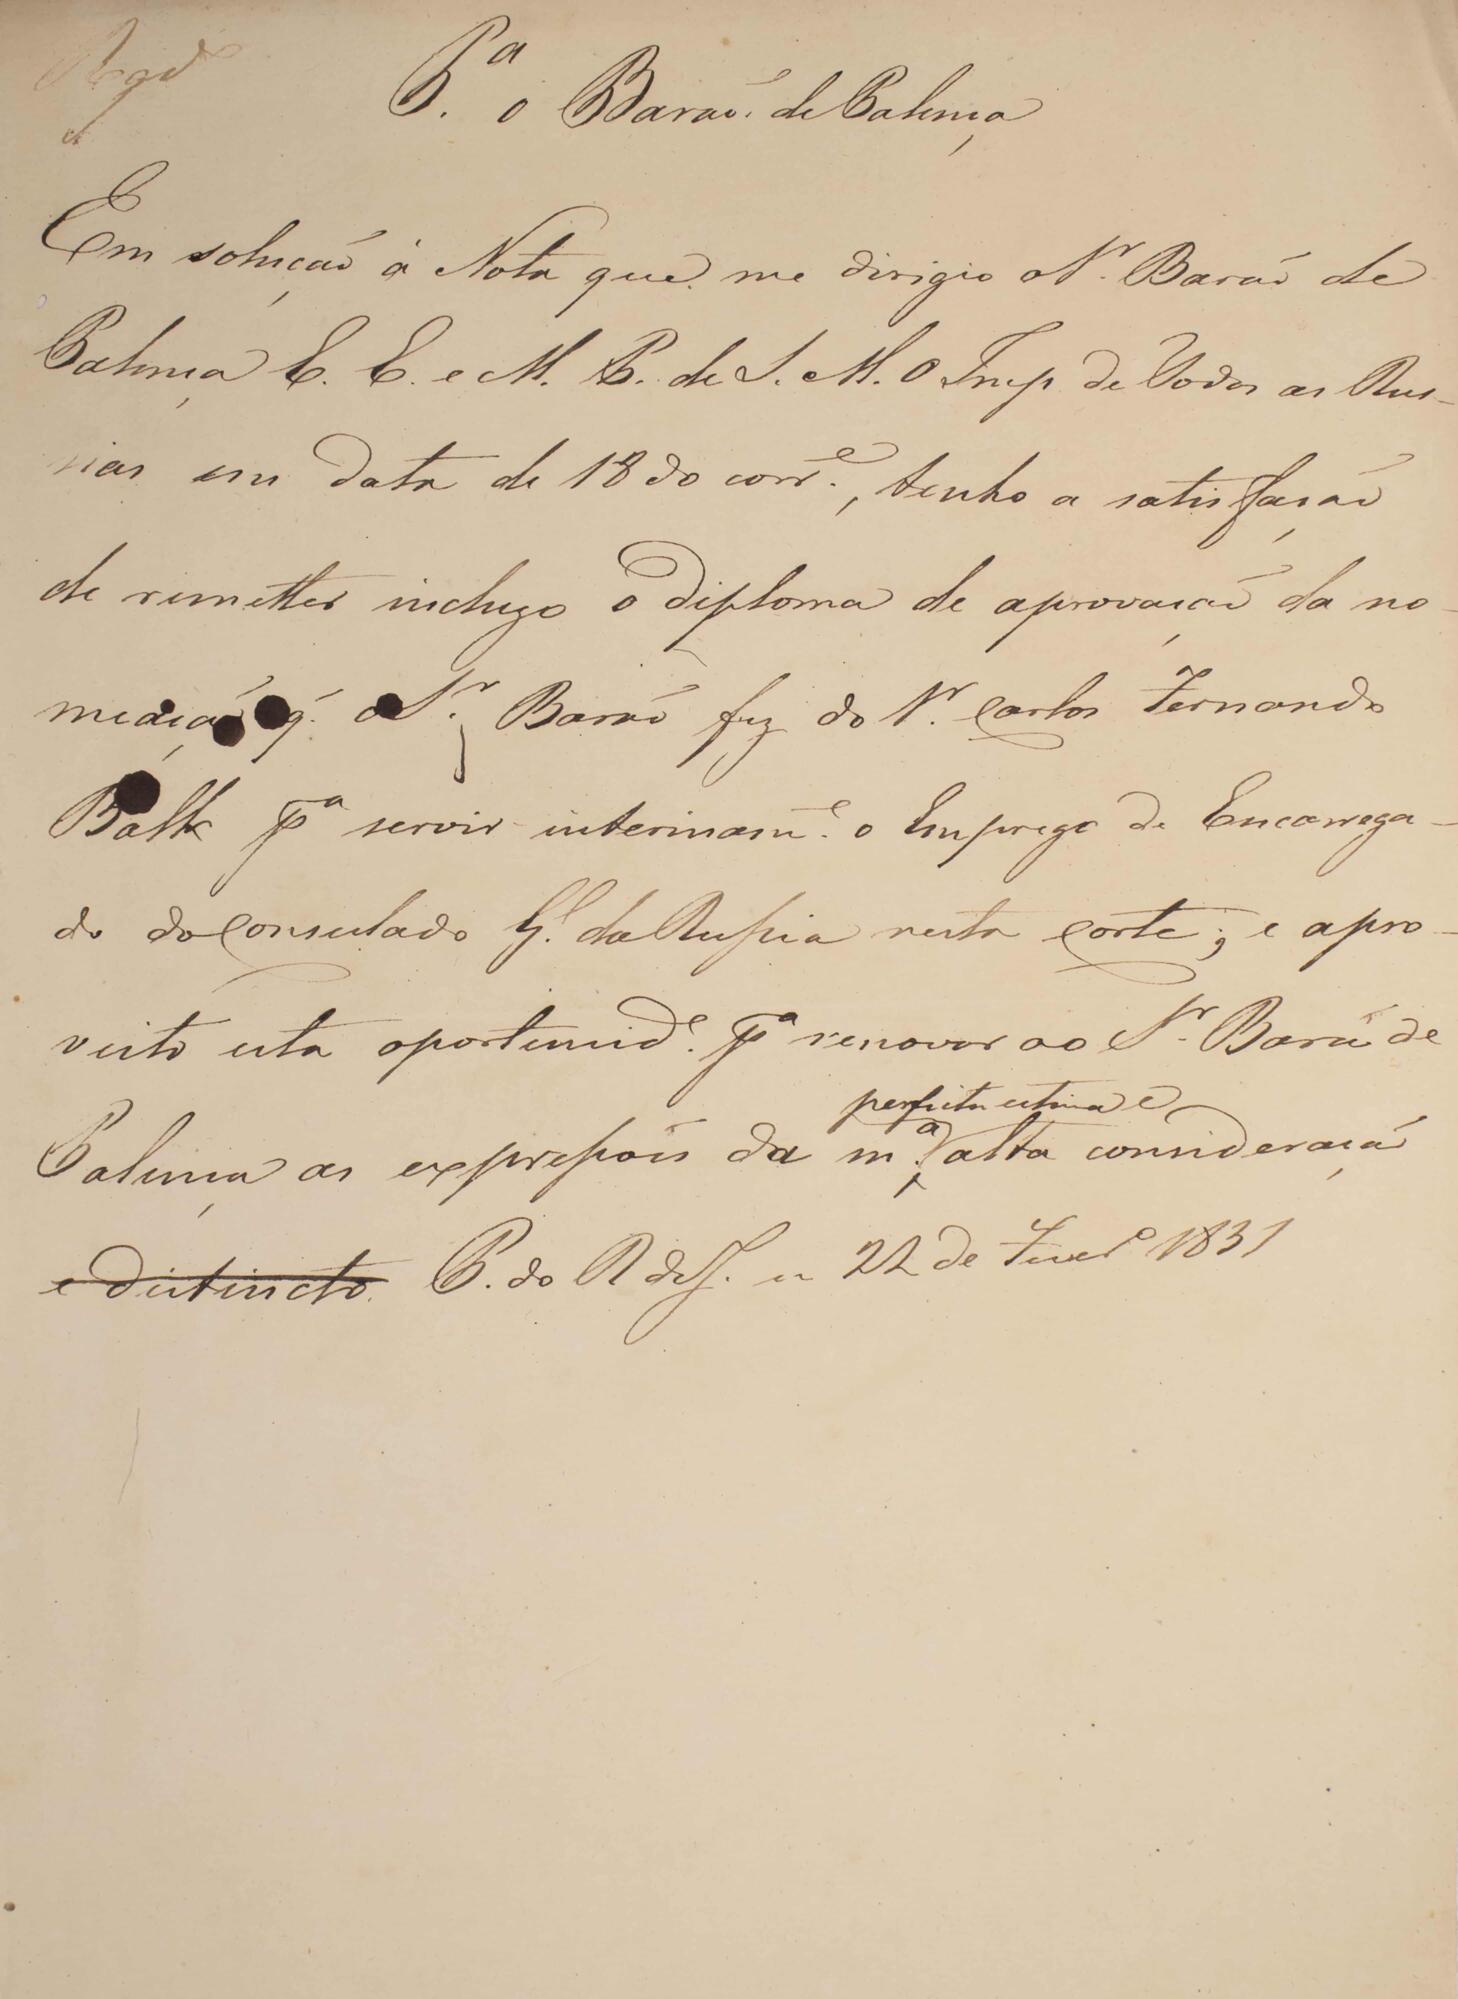 Rg.do
P.a o Barão de Palença
Em solução á Nota que me dirigio o Sr. Barão de
Palença E. E. e M. P. de S. M. O Imp de Todas as Rus-
sias em data de 18 do corr.e, tenho a satisfação
de remetter incluzo o Diploma de aprovação da no-
meação q. o Sr. Barão fez do Sr. Carlos Fernando
Balk p.a servir interinam.e o Emprego de Encarrega-
do do Consulado G.l da Russia nesta Corte; e apro-
veito esta oportunid.e p.a renovar ao Sr. Barão de
perfeita estima e
Palença as expressoẽs da m.a alta consideração
e distincto. P. do R de J. em 22 de Fever.o 1831